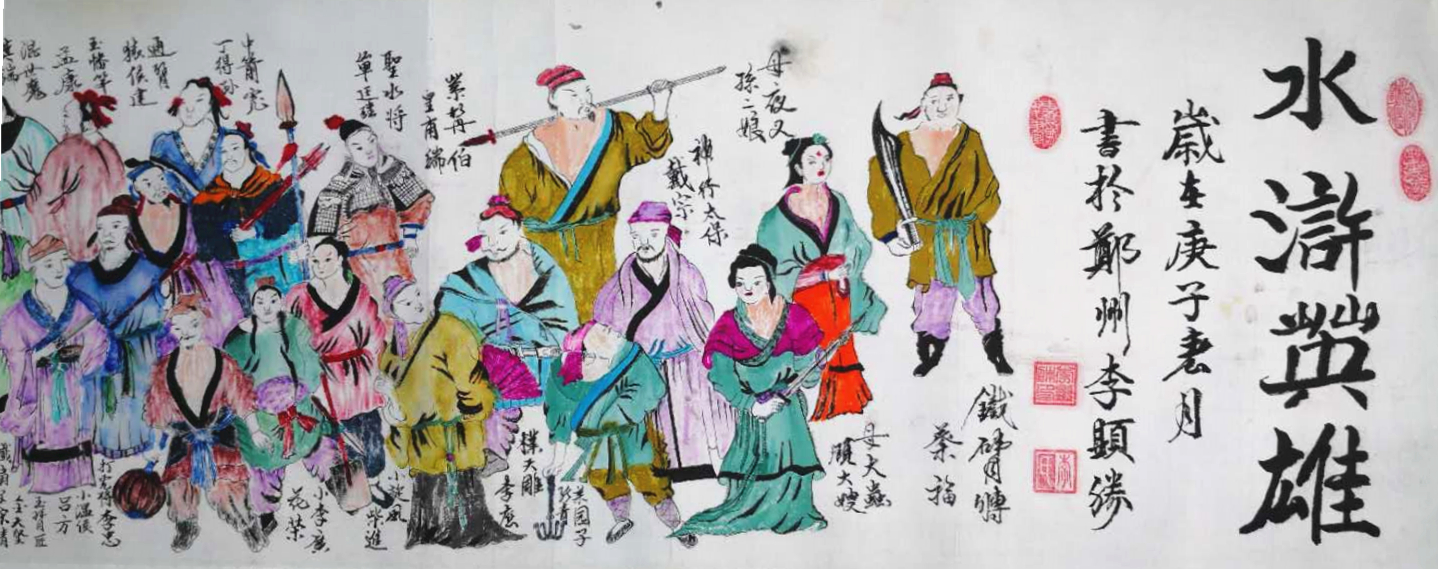 水滸英雄
歲在庚子春月
書於鄭州李顯勝
鐵臂膊
蔡福
母大蟲
顧大嫂
母夜叉
孫二娘
神行太保
戴宗
菜园子
張青
撲天雕
李應
紫髯伯
皇甫端
聖水将
單廷珪
小旋風
柴進
小李廣
花榮
中箭虎
丁得孙
通臂
猿侯建
玉幡竿
孟康
混世魔
打虎将李忠
小温侯
吕方
玉臂匠
金大堅